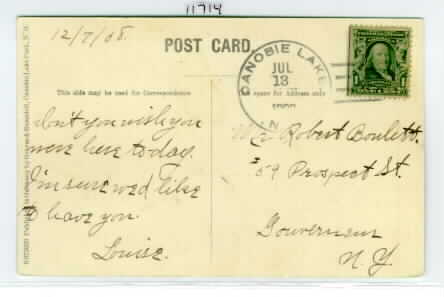 11714
12/7/08.
POST CARD.
CANOBIE LAKE
JUL
13
N.
This side may be used for Correspondence
space for Address only
don't you wish you
were here today.
I'm sure we'd like
to have you.
Louise.
Robert Boulett.
59 Prospect St.
Gouverneur
N. Y.